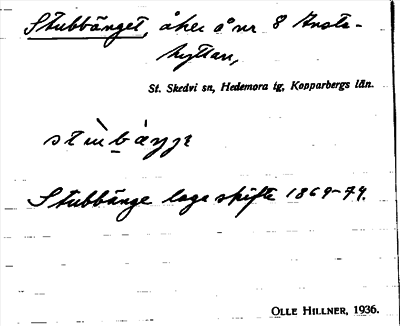 Stubbänget, åker å nr 8 Insta-
hyttan,
St. Skedvi sn, Hedemora tg, Kopparbergs län.
Stubbänge laga skifte 1869-79.
OLLE HILLNER, 1936.